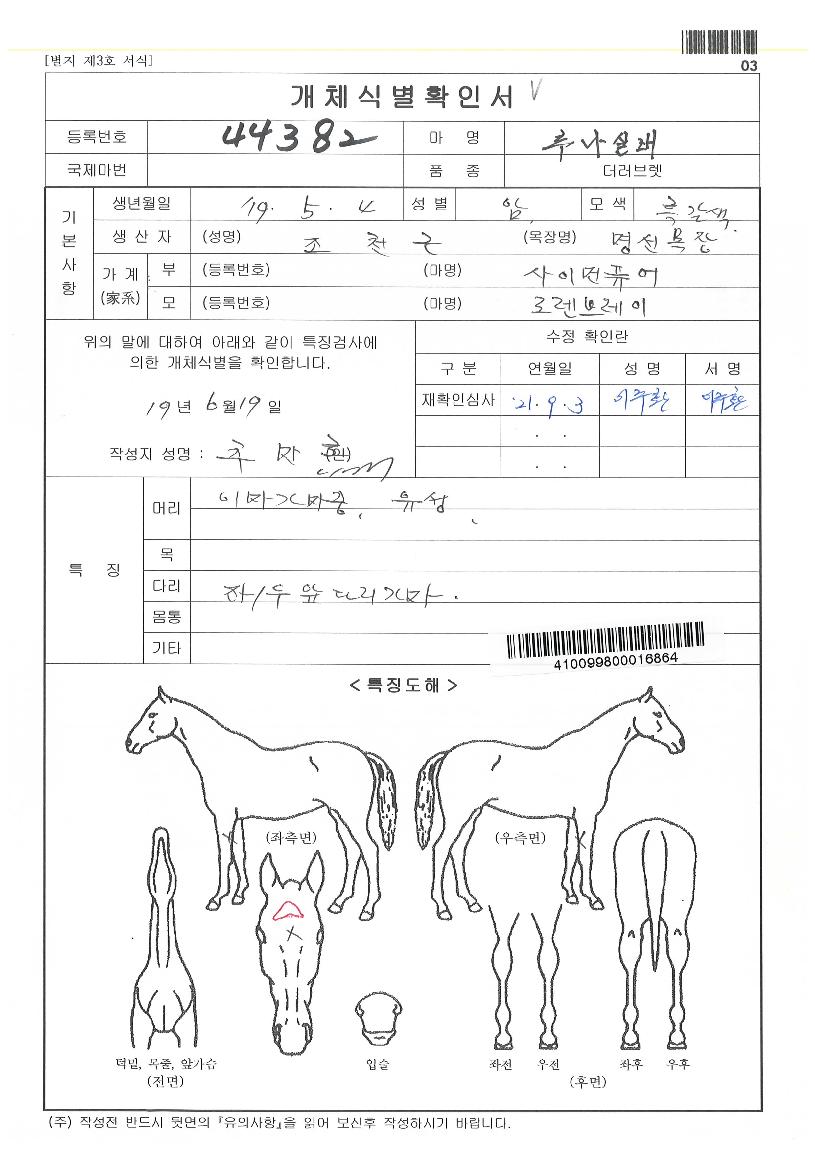 [별지 제3호 서식]
03
개체식별확인서 V
등록번호 44382 마 명 루나실래
국제마번 품 종 더러브렛
기본사항
생년월일 19. 5. 4 성별 암. 모색 흑갈색.
생산자 (성명) 조천근 (목장명) 명선목장
가계 (家系) 부 (등록번호) (마명) 사이먼퓨어
모 (등록번호) (마명) 로렌브레이
위의 말에 대하여 아래와 같이 특징검사에
의한 개체식별을 확인합니다.
19년 6월 19일
작성자 성명 : (인)
수정 확인란
구분 연월일 성명 서명
재확인심사 '21. 9. 3 이주환 이주환
. .
. .
특 징
머리 이마가마중, 유성,
목
다리 좌/우 앞다리가마.
몸통
기타
410099800016864
<특징도해>
(좌측면) (우측면)
턱밑, 목줄, 앞가슴
(전면)
입술
좌전 우전 좌후 우후
(후면)
(주) 작성전 반드시 뒷면의 『유의사항』을 읽어 보신후 작성하시기 바랍니다.